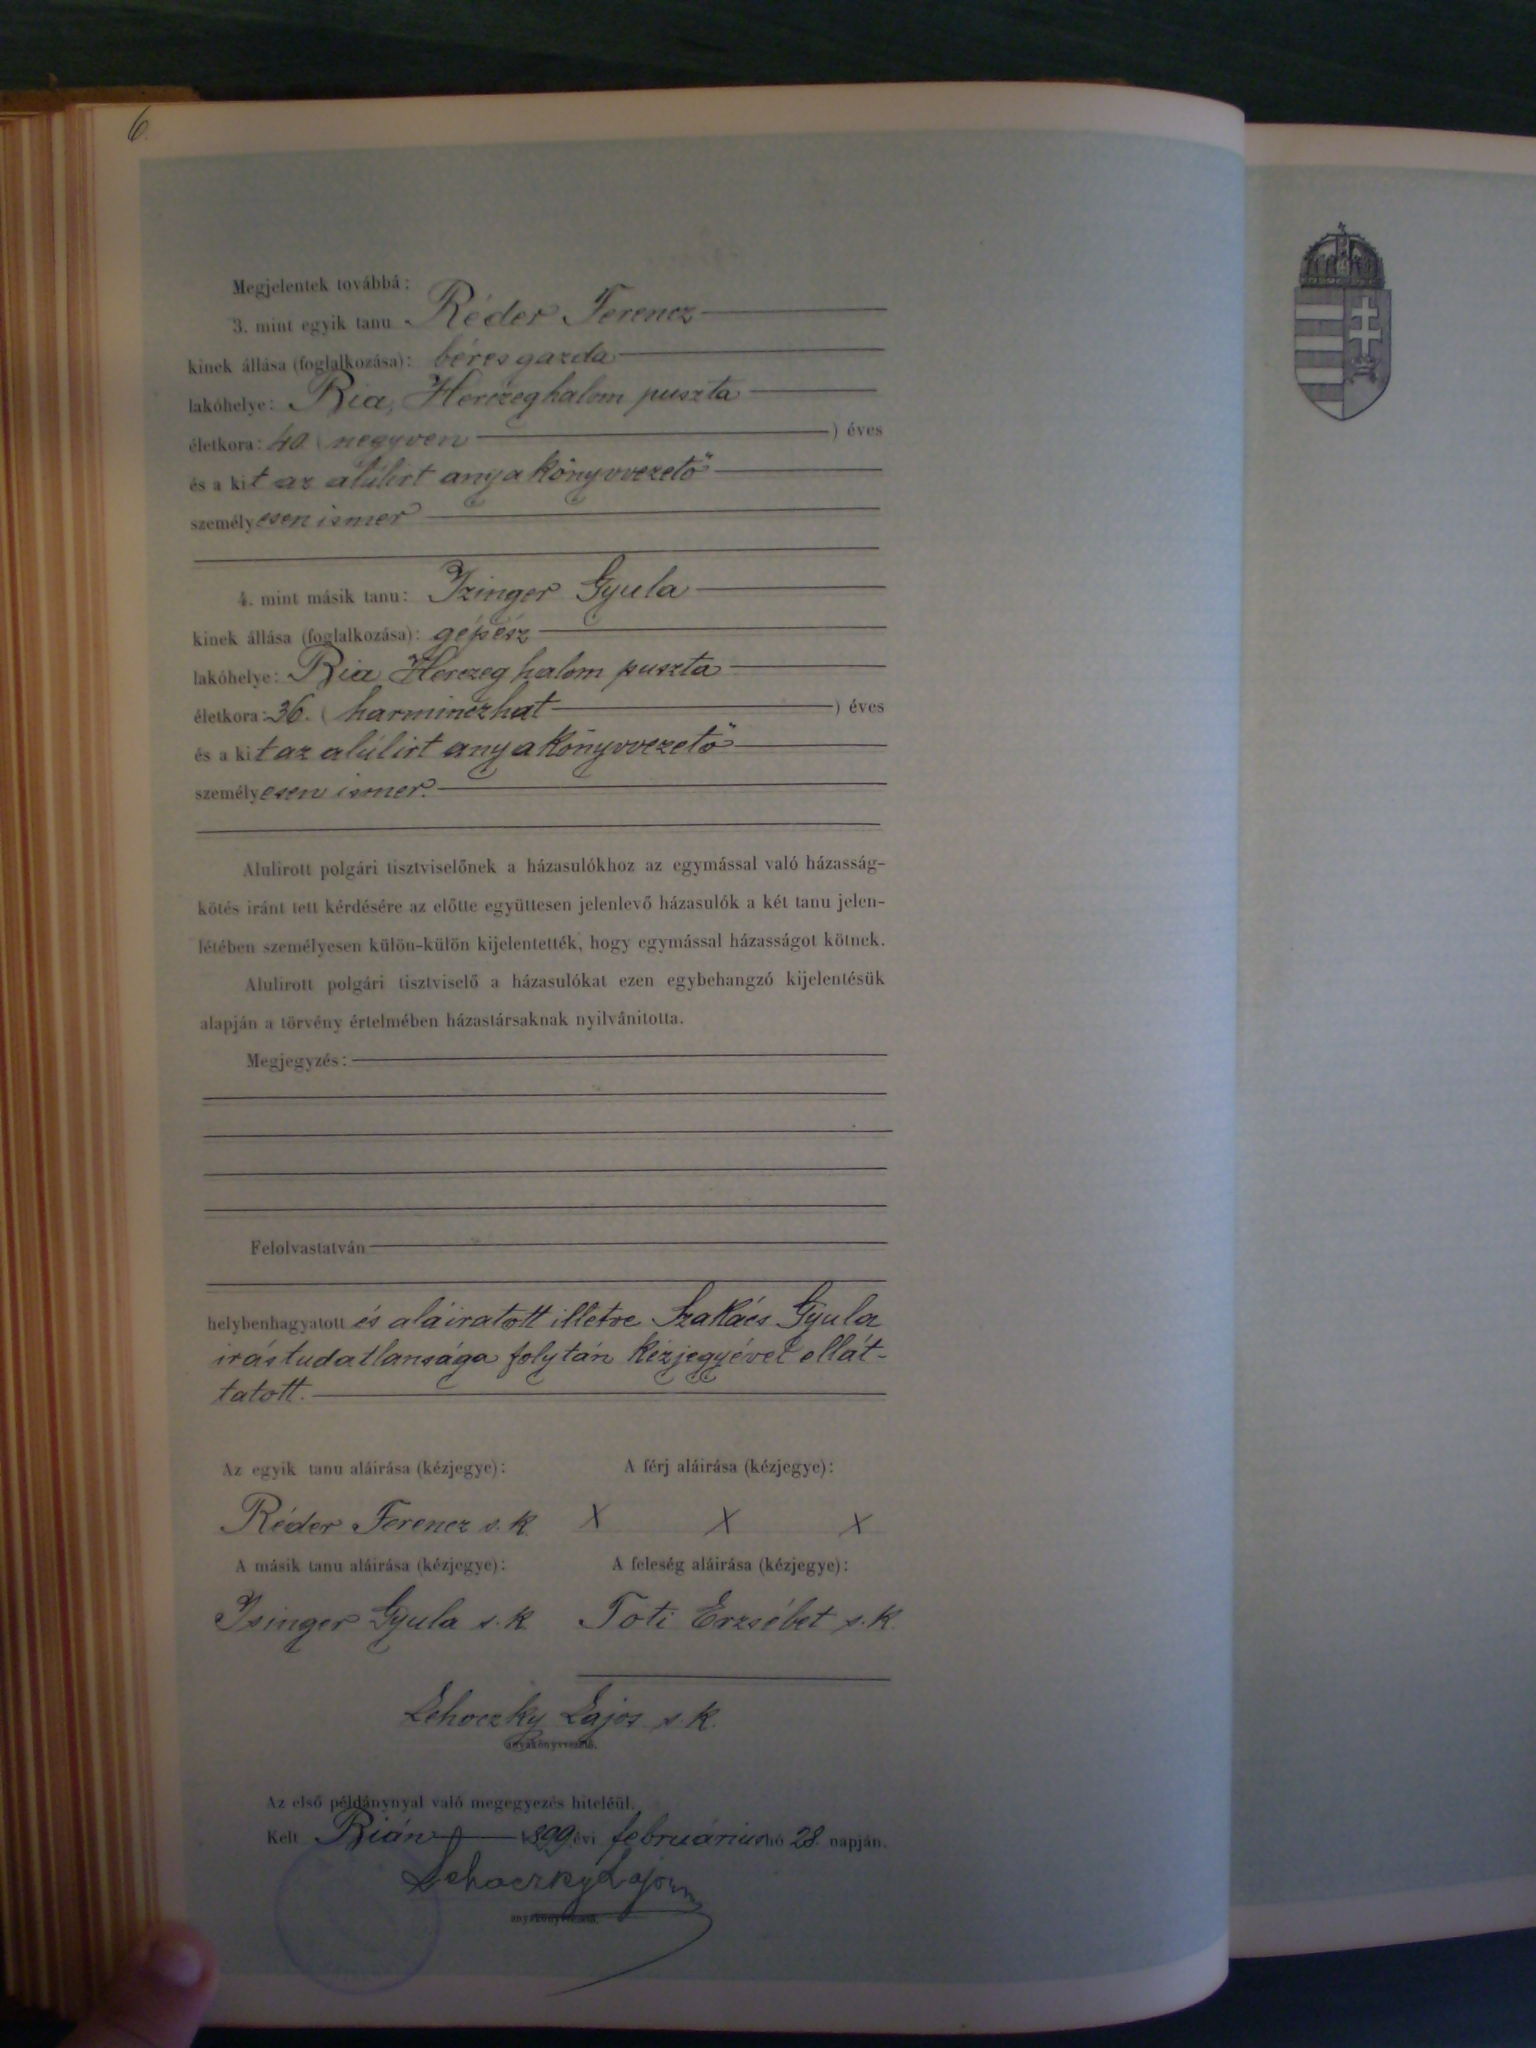 6.
Megjelentek továbbá:
3. mint egyik tanu Réder Ferencz
kinek állása (foglalkozása): béres gazda
lakóhelye: Bia, Herczeghalom puszta
életkora: 40 (negyven ) éves
és a kit az alúlirt anyakönyvvezető
személyesen ismer
4. mint másik tanu: Izinger Gyula
kinek állása (foglalkozása): gépész
lakóhelye: Bia Herczeghalom puszta
életkora: 36. (harminczhat ) éves
és a kit az alúlirt anyakönyvvezető
személyesen ismer.
Alulirott polgári tisztviselőnek a házasulókhoz az egymással való házasság-
kötés iránt tett kérdésére az előtte együttesen jelenlevő házasulók a két tanu jelen-
létében személyesen külön-külön kijelentették, hogy egymással házasságot kötnek.
Alulirott polgári tisztviselő a házasulókat ezen egybehangzó kijelentésük
alapján a törvény értelmében házastársaknak nyilvánitotta.
Megjegyzés:
Felolvastatván
helybenhagyatott és aláiratott illetve Szakács Gyula
irástudatlansága folytán kézjegyével ellát-
tatott.
Az egyik tanu aláirása (kézjegye): A férj aláirása (kézjegye):
Réder Ferencz s. k. X X X
A másik tanu aláirása (kézjegye): A feleség aláirása (kézjegye):
Izinger Gyula s. k Toti Erzsébet s. k.
Lehoczky Lajos s. k.
anyakönyvvezető.
Az első példánynyal való megegyezés hiteléül.
Kelt Bián 1899 évi februárius hó 28. napján.
Lehoczky Lajos
anyakönyvvezető.